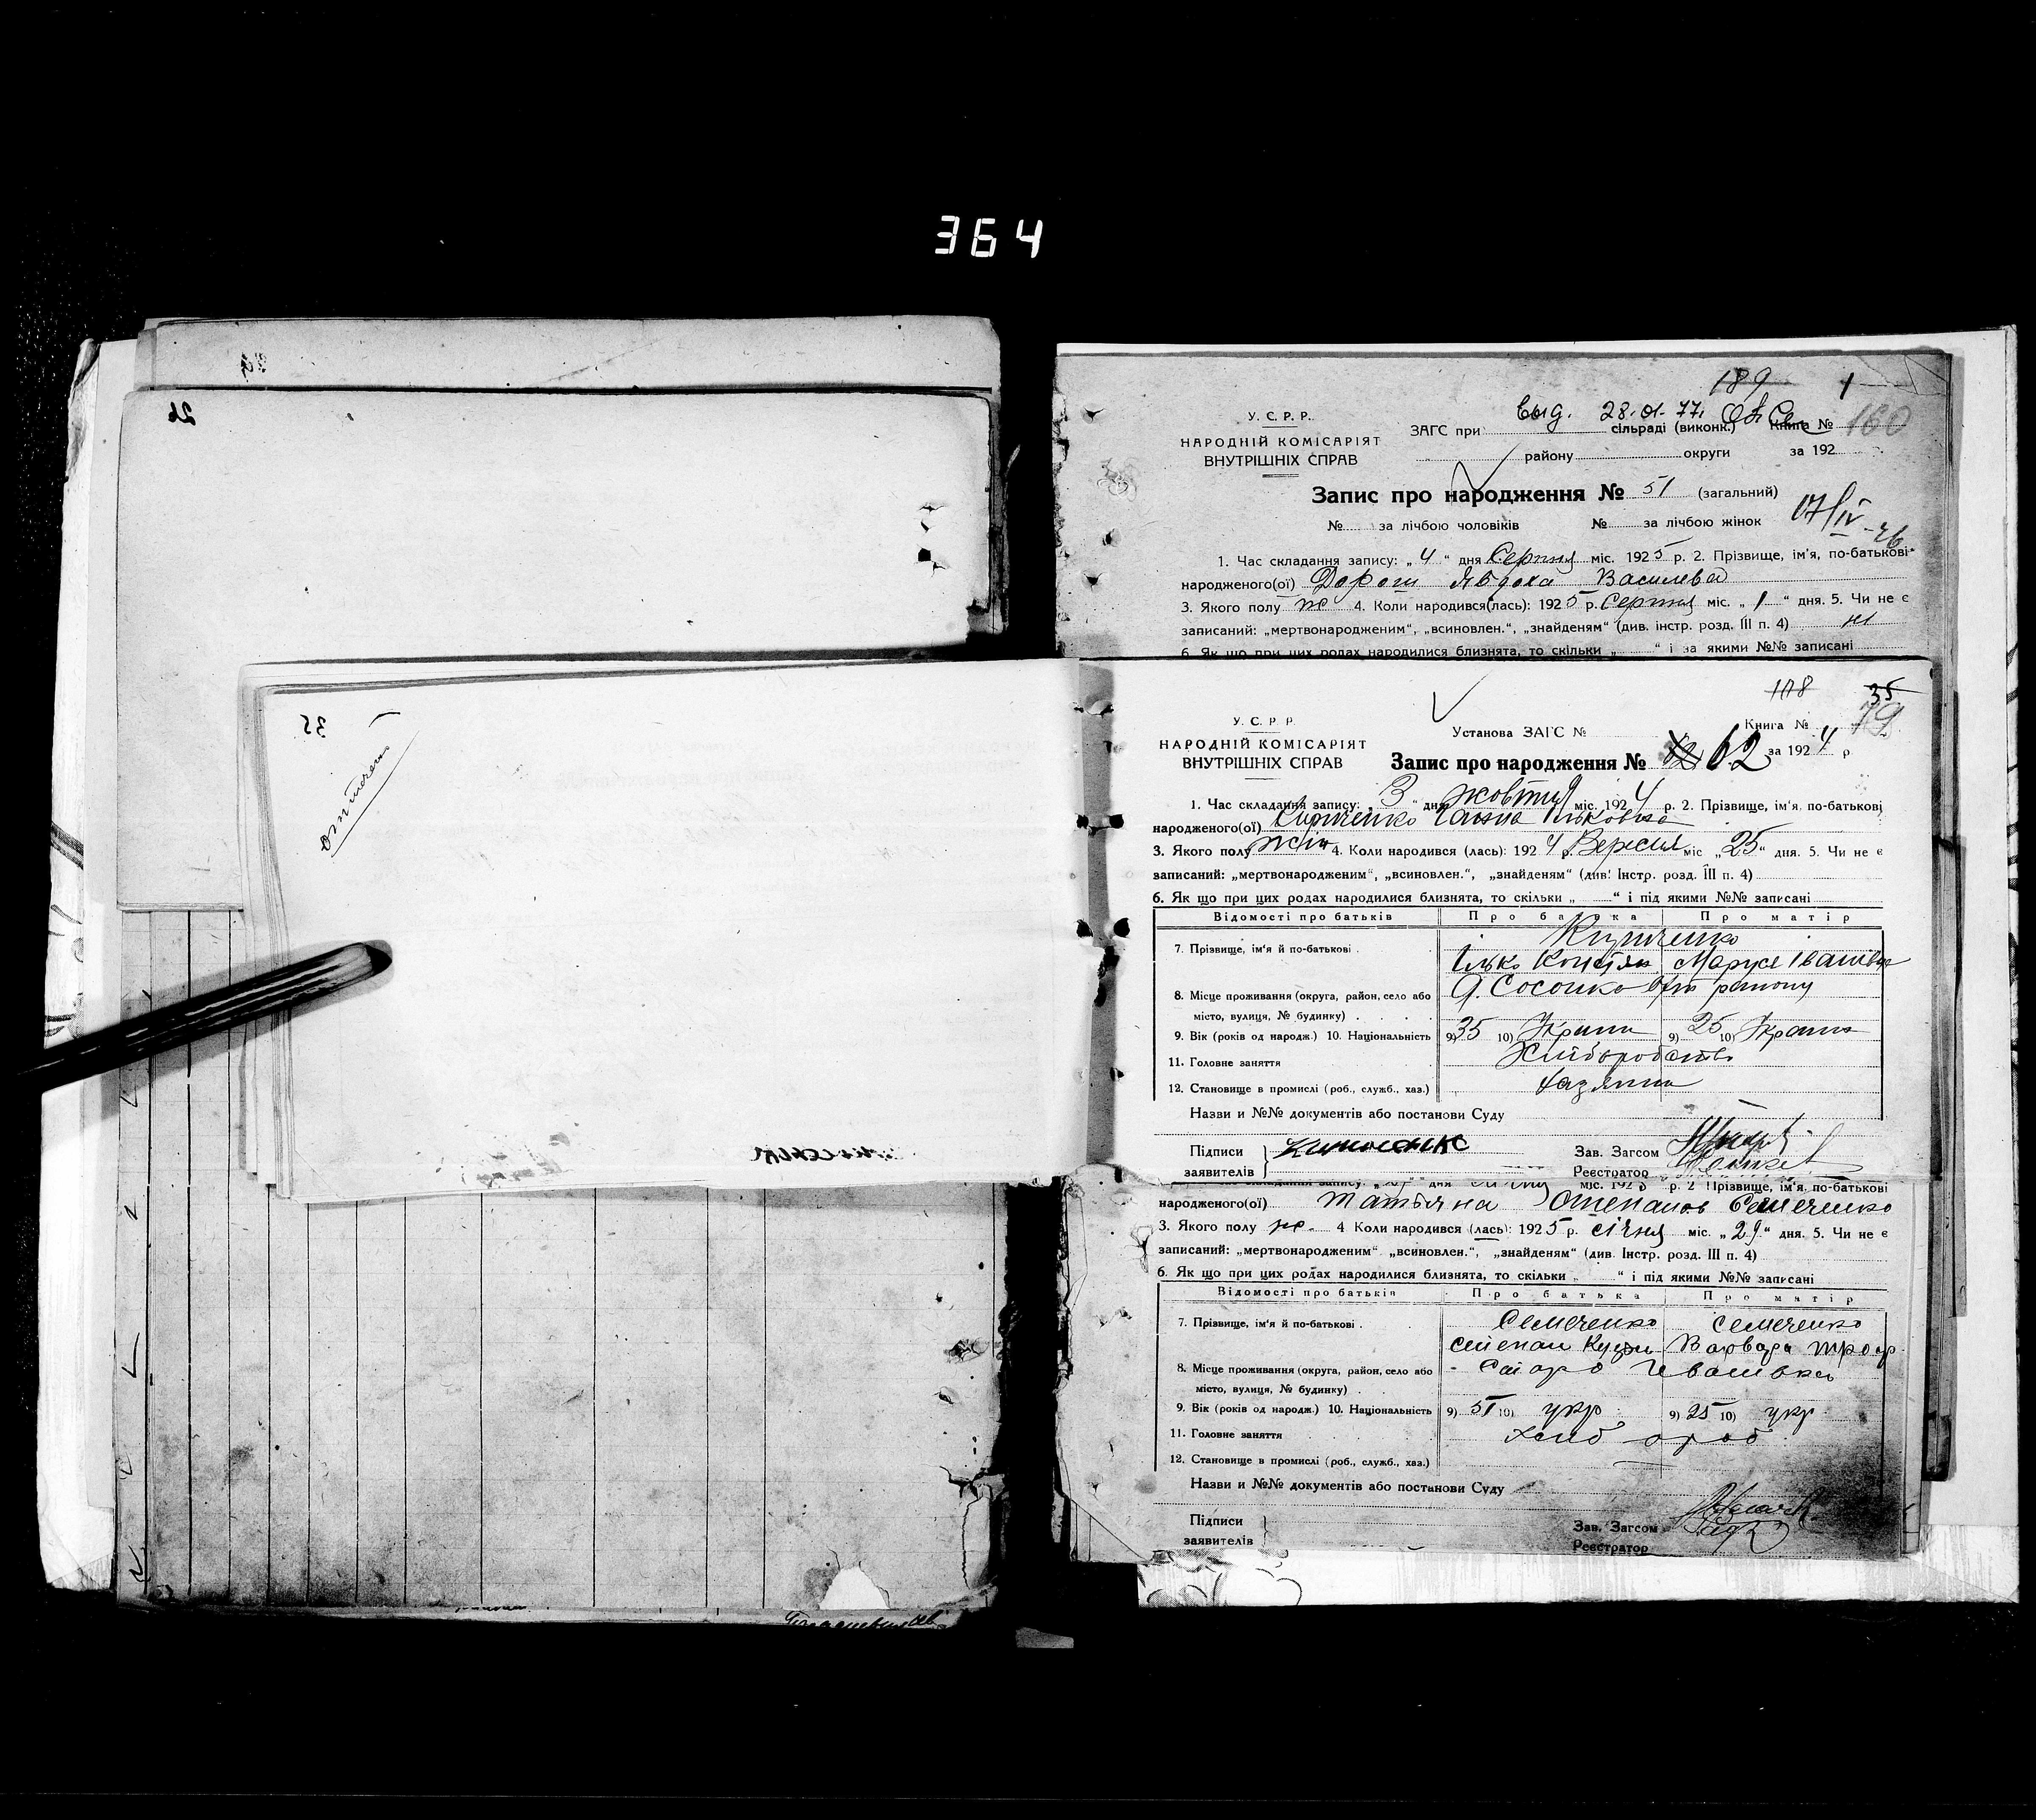 364
26
35
отмечен
189 1
выд. 28.01.77.
160
У. С. Р. Р.
НАРОДНІЙ КОМІСАРІЯТ
ВНУТРІШНІХ СПРАВ
ЗАГС при сільраді (виконк.) Книга №
району округи за 192
Запис про народження № 51 (загальний)
№ за лічбою чоловіків № за лічбою жінок
1. Час складання запису: „ 4 “ дня Серпня міс. 1925 р. 2. Прізвище, ім'я, по-батькові
народженого(ої) Явдоха Василева
3. Якого полу ж 4. Коли народився(лась): 1925 р. Серпня міс. „ 1 “ дня. 5. Чи не є
записаний: „мертвонародженим“, „всиновлен.“, „знайденям“ (див. інстр. розд. III п. 4) ні
6. Як що при цих родах народилися близнята, то скільки „ “ і за якими №№ записані
108 35
79
У. С. Р. Р.
НАРОДНІЙ КОМІСАРІЯТ
ВНУТРІШНІХ СПРАВ
Установа ЗАГС № Книга №
Запис про народження № 62 за 1924 р
1. Час складання запису: „ 3 “ дня жовтня міс. 1924 р. 2. Прізвище, ім'я, по-батькові
народженого(ої) Кириченко Ганна Ільковна
3. Якого полу жін 4. Коли народився (лась): 1924 р. Вересня міс „ 25 “ дня. 5. Чи не є
записаний: „мертвонародженим“, „всиновлен.“, „знайденям“ (див. Інстр. розд. III п. 4)
6. Як що при цих родах народилися близнята, то скільки „ “ і під якими №№ записані
Відомості про батьків Про батька Про матір
7. Прізвище, ім'я й по-батькові Кириченко
Ілько Констян Маруся Іванівна
8. Місце проживання (округа, район, село або
місто, вулиця, № будинку)
району
9. Вік (років од народж.) 10. Національність 9) 35 10) Україн 9) 25 10) Україн
11. Головне заняття Хліборобство
12. Становище в промислі (роб., служб., хаз.) хазяїни
Назви и №№ документів або постанови Суду
Підписи
заявителів
Зав. Загсом
Реєстратор
складання запису: дня міс. 192 р. 2 Прізвище, ім'я, по-батькові
народженого(ої) Татьяна Степанов Семеченко
3. Якого полу ж. 4 Коли народився (лась): 1925 р. січня міс. „ 29 “ дня. 5. Чи не є
записаний: „мертвонародженим“ „всиновлен.“, „знайденям“ (див. Інстр. розд. III п. 4)
6. Як що при цих родах народилися близнята, то скільки „ “ і під якими №№ записані
Відомості про батьків Про батька Про матір
7. Прізвище, ім'я й по-батькові Семеченко Семеченко
Степан Варвара Троф
8. Місце проживання (округа, район, село або Старо Іванівка
місто, вулиця, № будинку)
9. Вік (років од народж.) 10. Національність 9) 51 10) укр 9) 25 10) укр
11. Головне заняття хліб ороб
12. Становище в промислі (роб., служб., хаз.)
Назви и №№ документів або постанови Суду
Підписи
заявителів
Зав. Загсом
Реєстратор